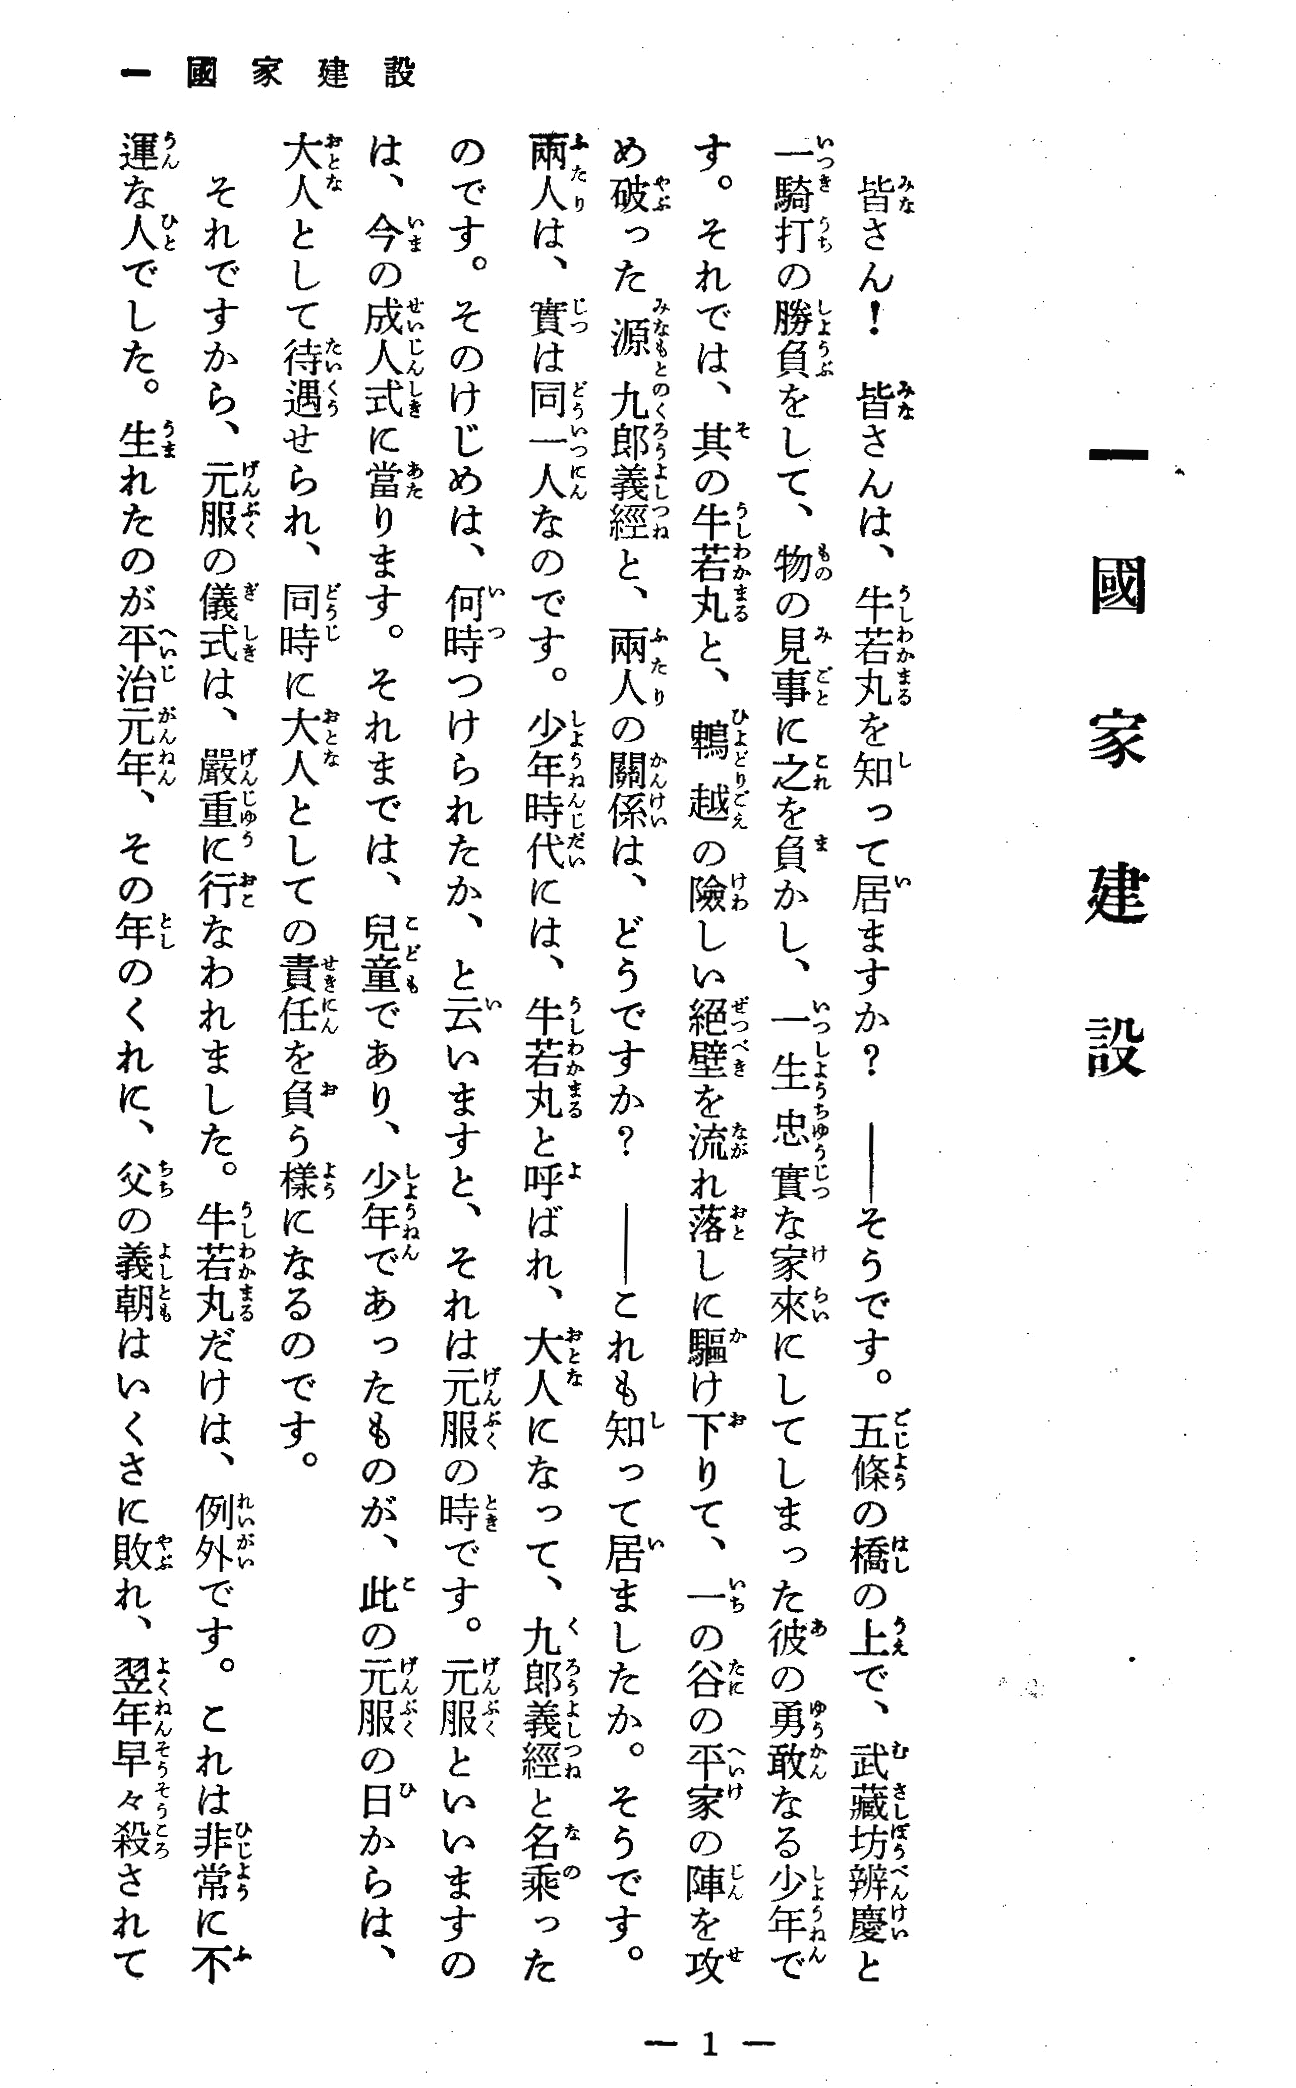 一 國家建設
一 國家建設
皆さん！ 皆さんは、牛若丸を知って居ますか？ ――そうです。五條の橋の上で、武藏坊辨慶と
一騎打の勝負をして、物の見事に之を負かし、一生忠實な家來にしてしまった彼の勇敢なる少年で
す。それでは、其の牛若丸と、鵯越の險しい絕壁を流れ落しに驅け下りて、一の谷の平家の陣を攻
め破った源九郎義經と、兩人の關係は、どうですか？ ――これも知って居ましたか。そうです。
兩人は、實は同一人なのです。少年時代には、牛若丸と呼ばれ、大人になって、九郎義經と名乘った
のです。そのけじめは、何時つけられたか、と云いますと、それは元服の時です。元服といいますの
は、今の成人式に當ります。それまでは、兒童であり、少年であったものが、此の元服の日からは、
大人として待遇せられ、同時に大人としての責任を負う樣になるのです。
それですから、元服の儀式は、嚴重に行なわれました。牛若丸だけは、例外です。これは非常に不
運な人でした。生れたのが平治元年、その年のくれに、父の義朝はいくさに敗れ、翌年早々殺されて
― 1 ―